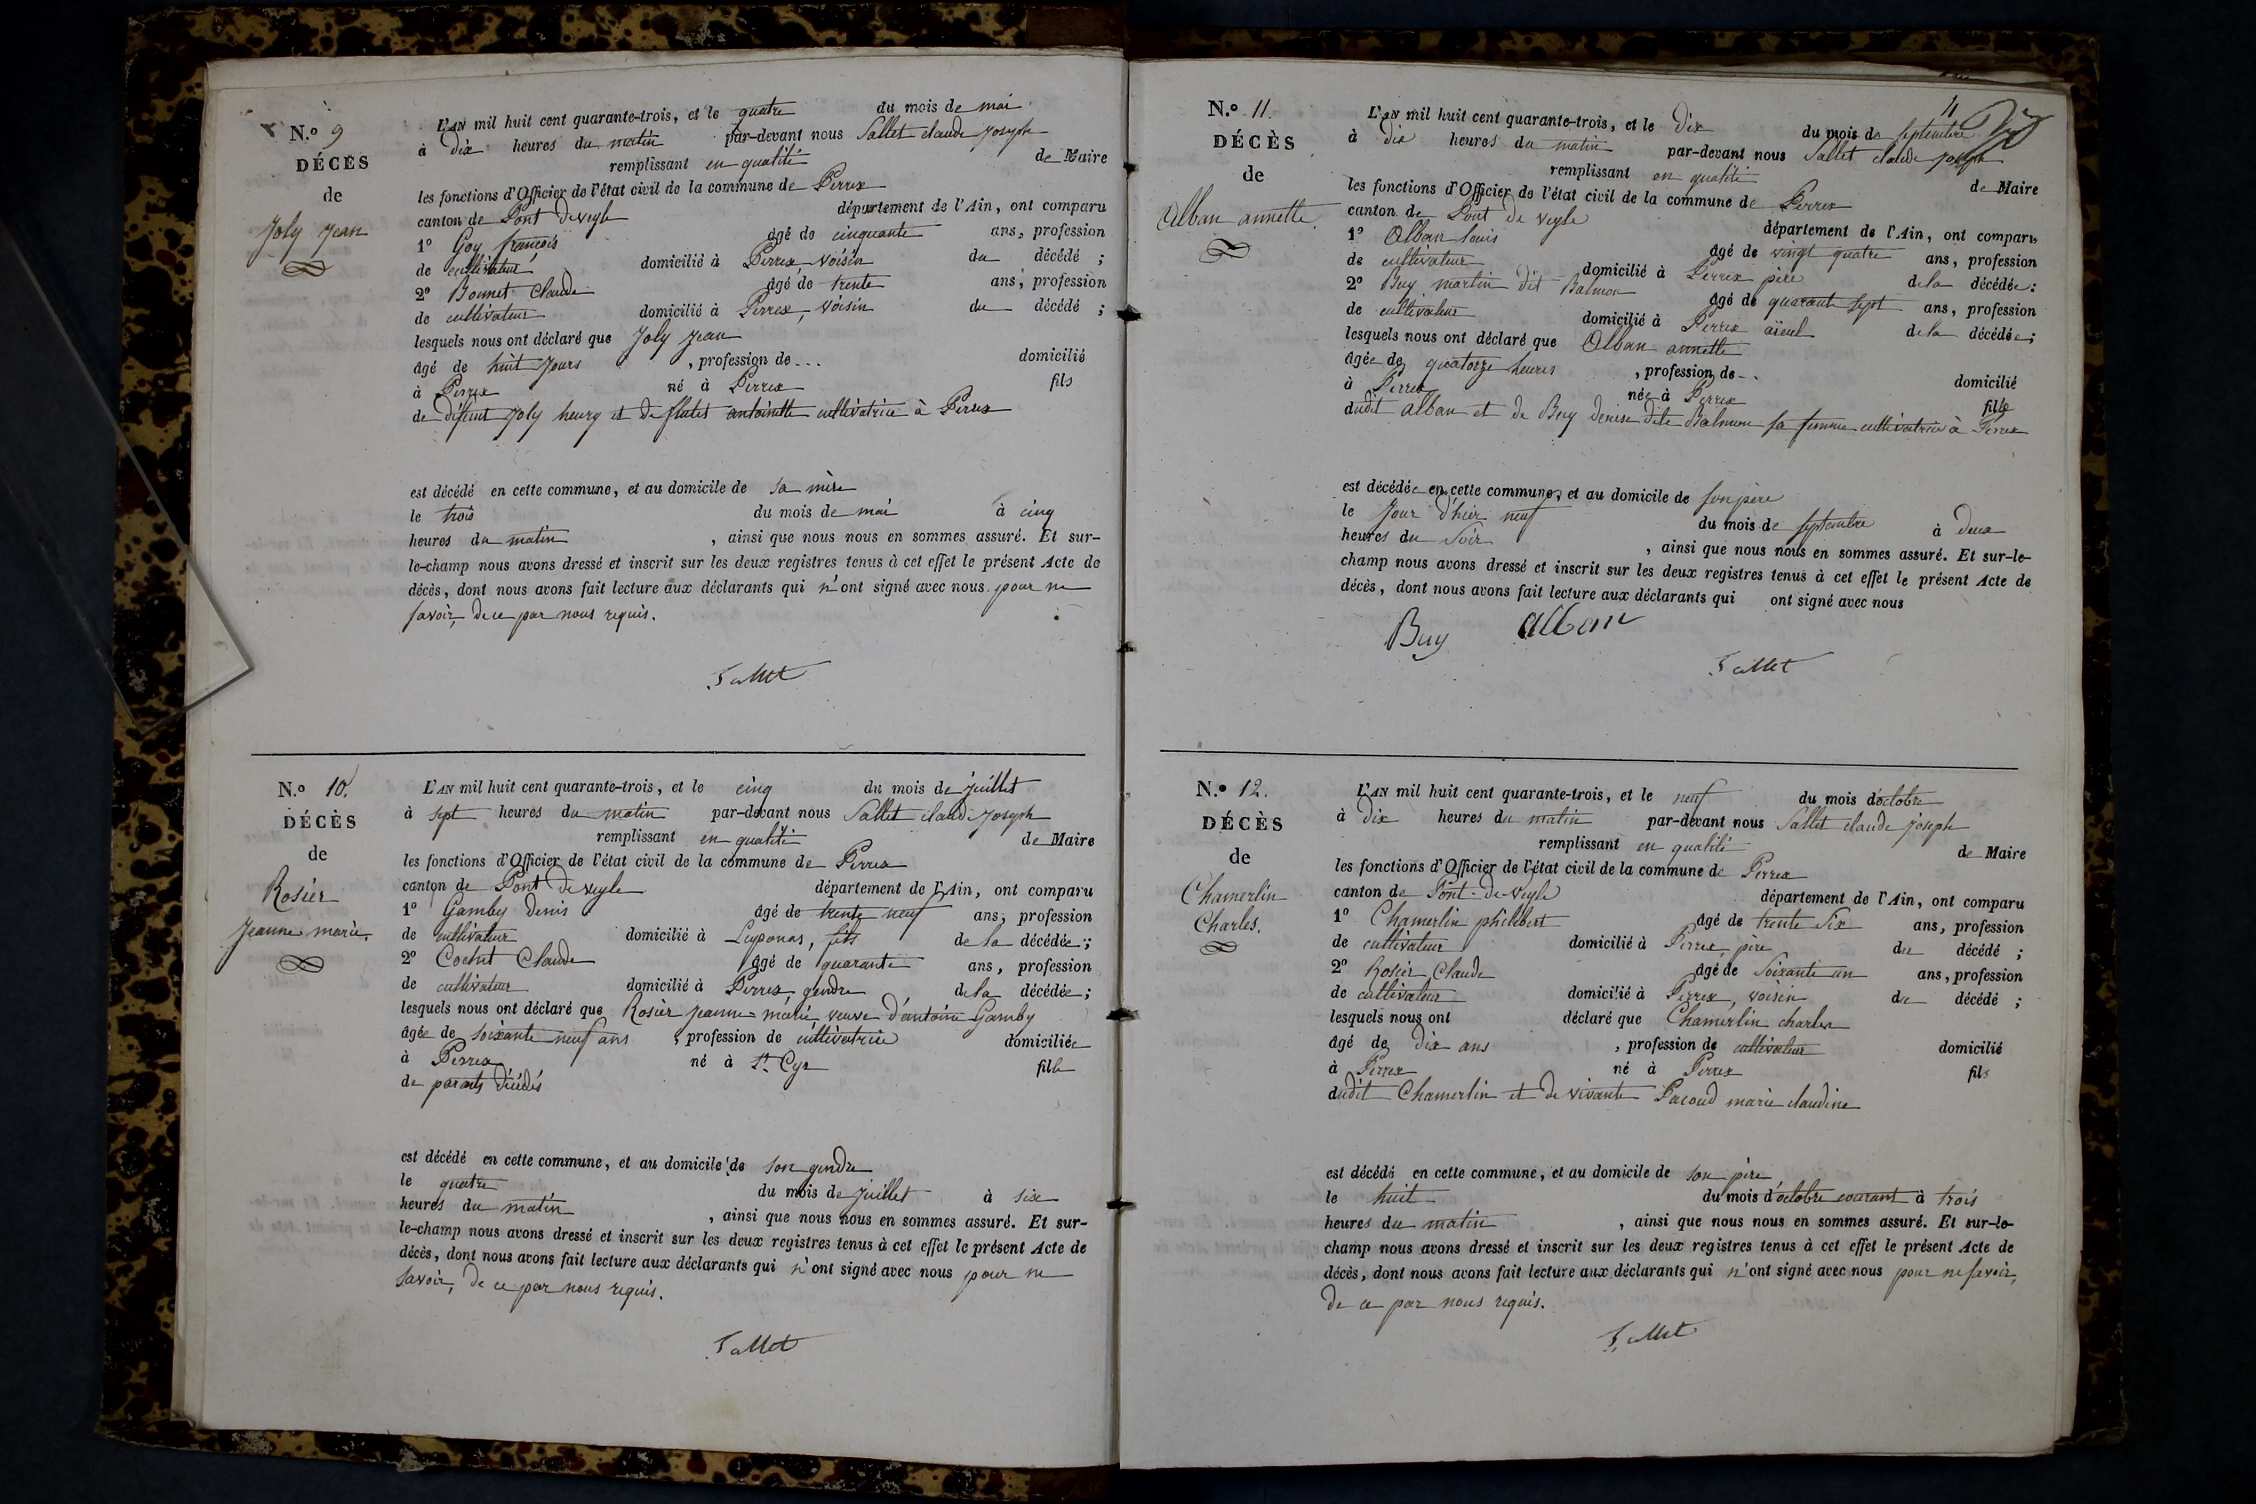 N.º 9
DÉCÈS
de
Joly Jean
L'AN mil huit cent quarante-trois, et le quatre du mois de mai
à dix heures du matin par-devant nous Sallet claude Joseph
remplissant en qualité de Maire
les fonctions d'Officier de l'état civil de la commune de Perrex
canton de Pont de veyle département de l'Ain, ont comparu
1º Goy françois âgé de cinquante ans, profession
de cultivateur domicilié à Perrex, voisin du décédé ;
2º Bonnet Claude âgé de trente ans, profession
de cultivateur domicilié à Perrex, voisin du décédé ;
lesquels nous ont déclaré que Joly Jean
âgé de huit Jours , profession de ... domicilié
à Perrex né à Perrex fils
de défunt Joly henry et de antoinette cultivatrice à Perrex
est décédé en cette commune, et au domicile de sa mère
le trois du mois de mai à cinq
heures du matin , ainsi que nous nous en sommes assuré. Et sur-
le-champ nous avons dressé et inscrit sur les deux registres tenus à cet effet le présent Acte de
décès, dont nous avons fait lecture aux déclarants qui n'ont signé avec nous pour ne
savoir, de ce par nous requis.
Sallet
N.º 10.
DÉCÈS
de
Rosier
Jeanne marie.
L'AN mil huit cent quarante-trois, et le cinq du mois de juillet
à sept heures du matin par-devant nous Sallet claude Joseph
remplissant en qualité de Maire
les fonctions d'Officier de l'état civil de la commune de Perrex
canton de Pont de veyle département de l'Ain, ont comparu
1º Gamby Denis âgé de trente neuf ans, profession
de cultivateur domicilié à fils de la décédée ;
2º Claude âgé de quarante ans, profession
de cultivateur domicilié à Perrex, gendre de la décédée ;
lesquels nous ont déclaré que Rosier Jeanne-marie, veuve d'antoine Gamby
âgée de soixante neuf ans , profession de cultivatrice domiciliée
à Perrex né à St. Cyr fille
de parents décédés
est décédé en cette commune, et au domicile de son gendre
le quatre du mois de juillet à six
heures du matin , ainsi que nous nous en sommes assuré. Et sur-
le-champ nous avons dressé et inscrit sur les deux registres tenus à cet effet le présent Acte de
décès, dont nous avons fait lecture aux déclarants qui n'ont signé avec nous pour ne
savoir, de ce par nous requis.
Sallet
4
N.º 11.
DÉCÈS
de
Alban annette
L'AN mil huit cent quarante-trois, et le Dix du mois de septembre
à dix heures du matin par-devant nous Sallet claude Joseph
remplissant en qualité de Maire
les fonctions d'Officier de l'état civil de la commune de Perrex
canton de Pont de veyle département de l'Ain, ont comparu
1º Alban louis âgé de vingt quatre ans, profession
de cultivateur domicilié à Perrex père de la décédée ;
2º Buy martin dit Balmon âgé de quarante sept ans, profession
de cultivateur domicilié à Perrex aïeul de la décédée ;
lesquels nous ont déclaré que Alban annette
âgée de quatorze heures , profession de ... domicilié
à Perrex née à Perrex fille
dudit alban et de Buy Denise dite Balmon sa femme cultivatrice à Perrex
est décédée en cette commune, et au domicile de son père
le Jour d'hier neuf du mois de septembre à deux
heures du soir , ainsi que nous nous en sommes assuré. Et sur-le-
champ nous avons dressé et inscrit sur les deux registres tenus à cet effet le présent Acte de
décès, dont nous avons fait lecture aux déclarants qui ont signé avec nous
Buy alban
Sallet
N.º 12.
DÉCÈS
de
Chamerlin
Charles.
L'AN mil huit cent quarante-trois, et le neuf du mois d'octobre
à dix heures du matin par-devant nous Sallet claude Joseph
remplissant en qualité de Maire
les fonctions d'Officier de l'état civil de la commune de Perrex
canton de Pont-de-veyle département de l'Ain, ont comparu
1º Chamerlin philibert âgé de trente six ans, profession
de cultivateur domicilié à Perrex, père du décédé ;
2º Rosier Claude âgé de soixante un ans, profession
de cultivateur domicilié à Perrex, voisin du décédé ;
lesquels nous ont déclaré que Chamerlin charles
âgé de dix ans , profession de cultivateur domicilié
à Perrex né à Perrex fils
dudit Chamerlin et de vivante Pacoud marie claudine
est décédé en cette commune, et au domicile de son père
le huit du mois d'octobre courant à trois
heures du matin , ainsi que nous nous en sommes assuré. Et sur-le-
champ nous avons dressé et inscrit sur les deux registres tenus à cet effet le présent Acte de
décès, dont nous avons fait lecture aux déclarants qui n'ont signé avec nous pour ne savoir,
de ce par nous requis.
Sallet